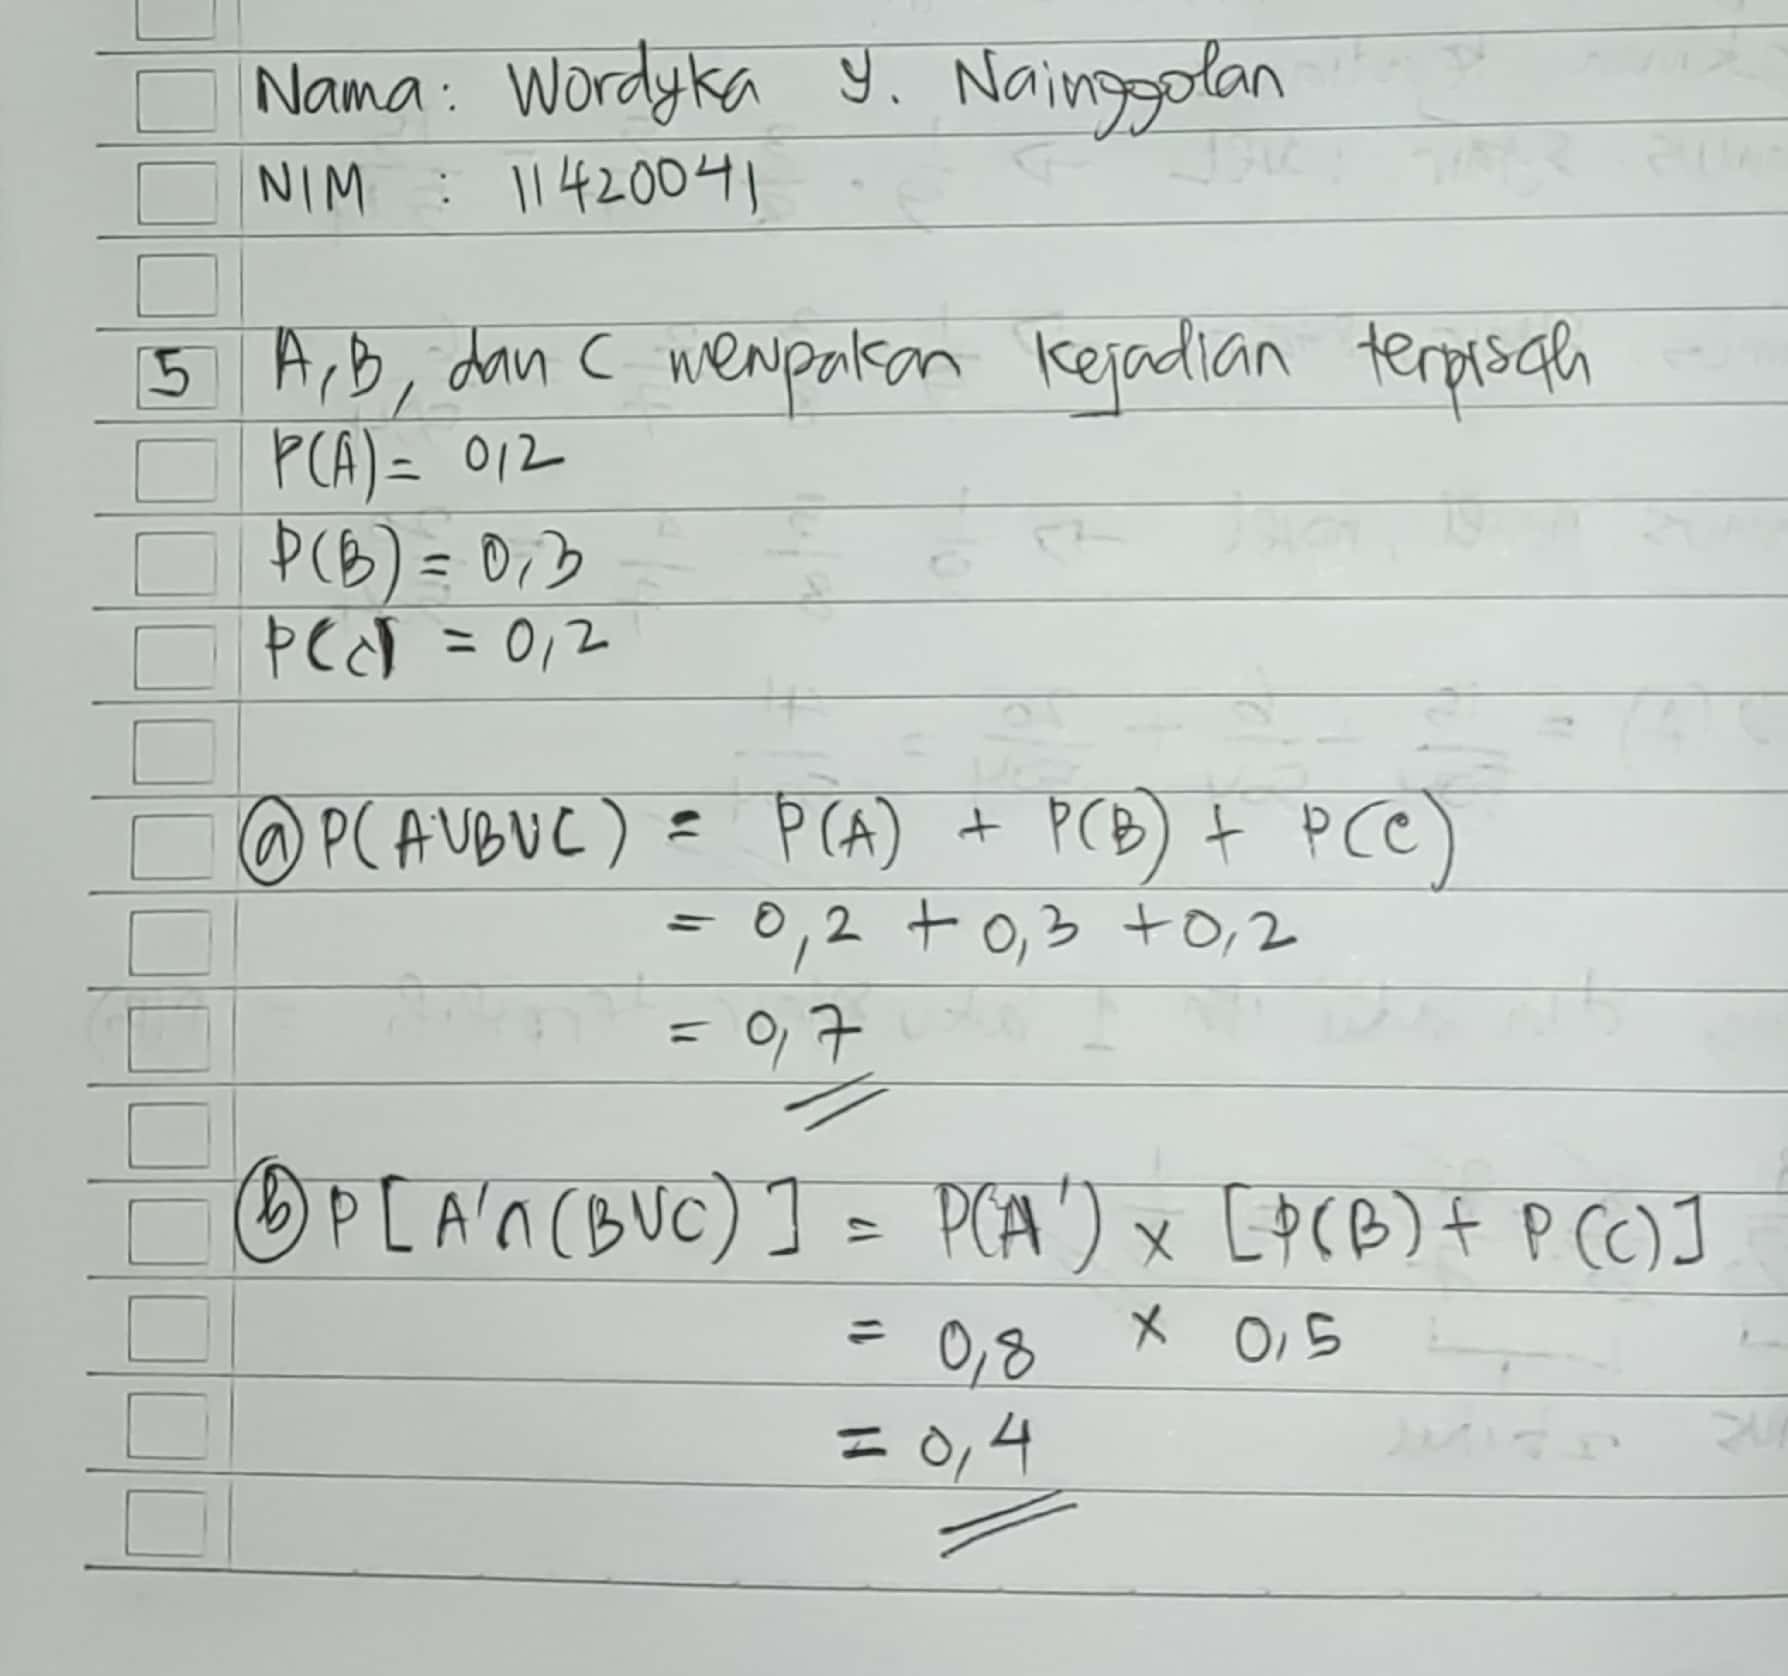 Nama : Wordyka Y. Nainggolan
NIM : 11420041
5 A, B, dan C merupakan kejadian terpisah
P(A) = 0,2
P(B) = 0,3
P(C) = 0,2
(a) P(A∪B∪C) = P(A) + P(B) + P(C)
= 0,2 + 0,3 + 0,2
= 0,7
(b) P[A'∩(B∪C)] = P(A') x [P(B) + P(C)]
= 0,8 x 0,5
= 0,4